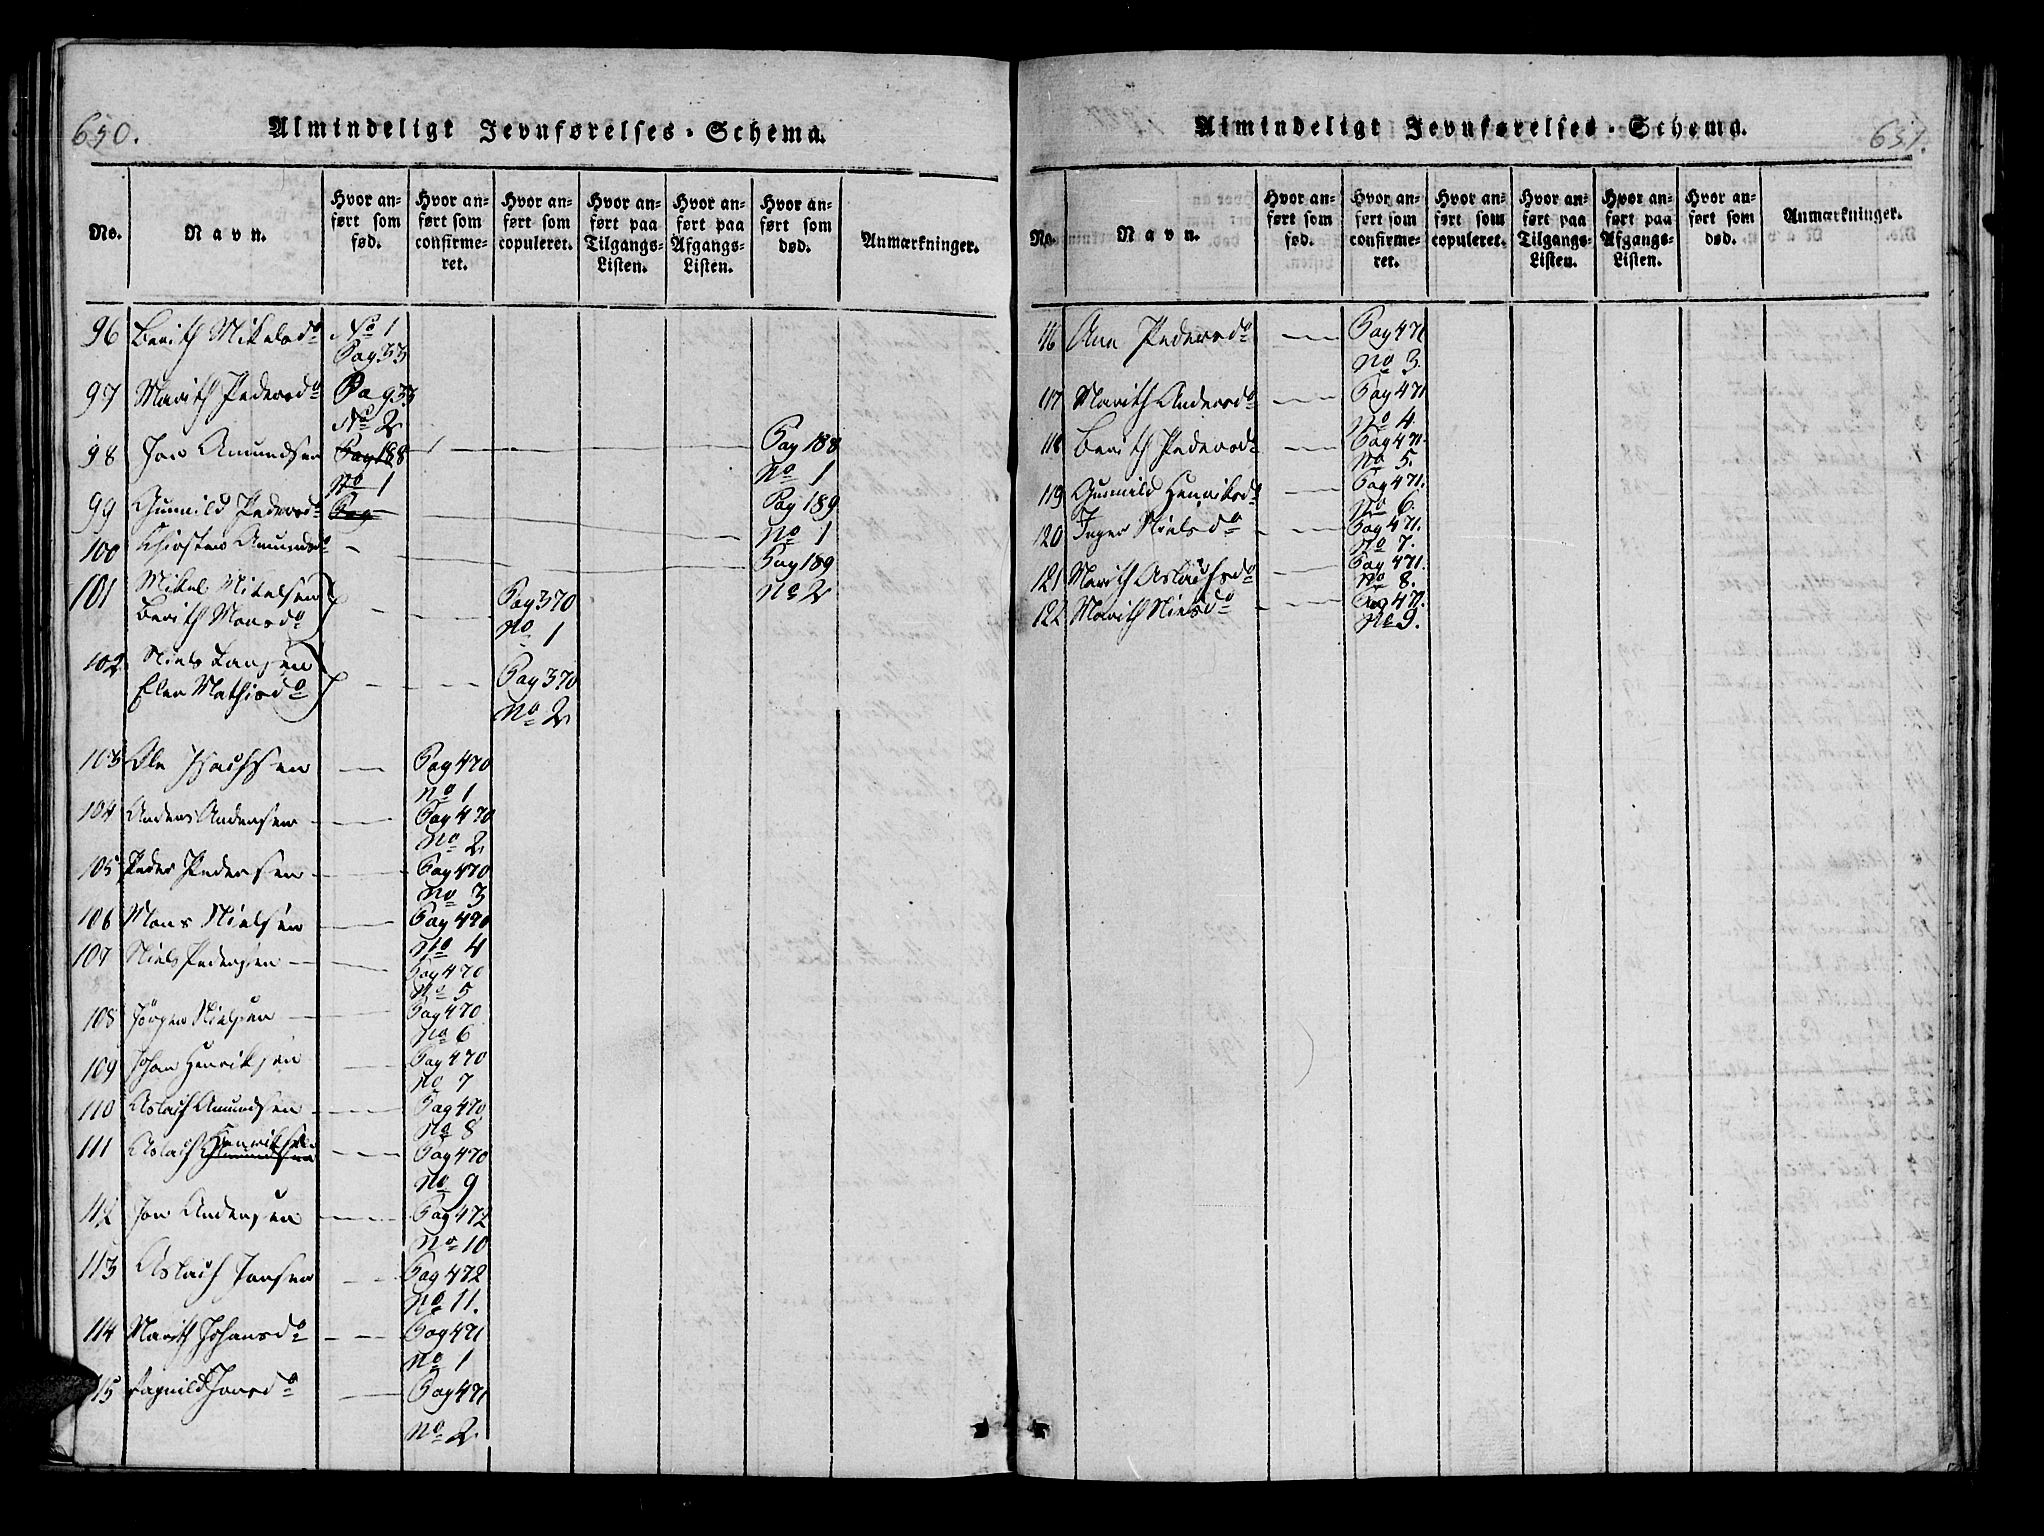 650.
Almindeligt Jevnførelses-Schema.
No.
Navn.
Hvor anført som fød.
Hvor anført som confirmeret.
Hvor anført som copuleret.
Hvor anført paa Tilgangs-Listen.
Hvor anført paa Afgangs-Listen.
Hvor anført som død.
Anmærkninger.
96 Berith Mikelsdo No 1
Pag 33
97 Marith Pedersdo Pag 33
No 2
98 Jon Amundsen Pag 188 Pag 188
No 1 No 1
99 Gunnild Pedersdo Pag Pag 189
No 1
100 Kirsten Amundsdo Pag 189
No 2
101 Mikel Mikelsen
Berith Monsdo Pag 370
No 1
102 Niels Larsen
Elen Mathisdo Pag 370
No 2
103 Ole Isachsen Pag 470
No 1
104 Anders Andersen Pag 470
No 2
105 Peder Pedersen Pag 470
No 3
106 Mons Nielsen Pag 470
No 4
107 Niels Pedersen Pag 470
No 5
108 Jörgen Nielsen Pag 470
No 6
109 Johan Henriksen Pag 470
No 7
110 Aslach Amundsen Pag 470
No 8
111 Aslach Amundsen Henriksen Pag 470
No 9
112 Jon Andersen Pag 472
No 10
113 Aslach Jonsen Pag 472
No 11.
114 Marith Johansdo Pag 471
No 1
115 Ragnild Jonsdo Pag 471
No 2
Almindeligt Jevnførelses-Schema.
651.
No.
Navn.
Hvor anført som fød.
Hvor anført som confirmeret.
Hvor anført som copuleret.
Hvor anført paa Tilgangs-Listen.
Hvor anført paa Afgangs-Listen.
Hvor anført som død.
Anmærkninger.
116 Ane Pedersdo Pag 471
No 3.
117 Marith Andersdo Pag 471
No 4.
118 Berith Pedersdo Pag 471.
No 5.
119 Gunnild Henriksdo Pag 471.
No 6.
120 Inger Nielsdo Pag 471.
No 7.
121 Marith Aslachsdo Pag 471.
No 8.
122 Marith Nielsdo Pag 471.
No 9.